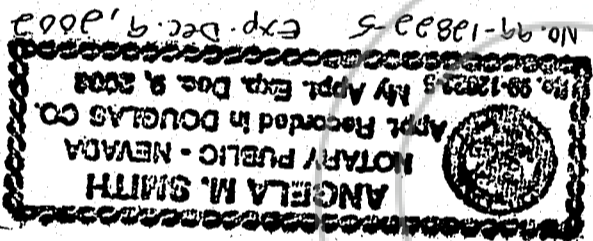 ANGELA M. SMITH
NOTARY PUBLIC - NEVADA
Appt. Recorded in DOUGLAS CO.
No. 99-12833-5 My Appt. Exp. Dec. 9, 2002
No. 99-12833-5 Exp. Dec. 9, 2002